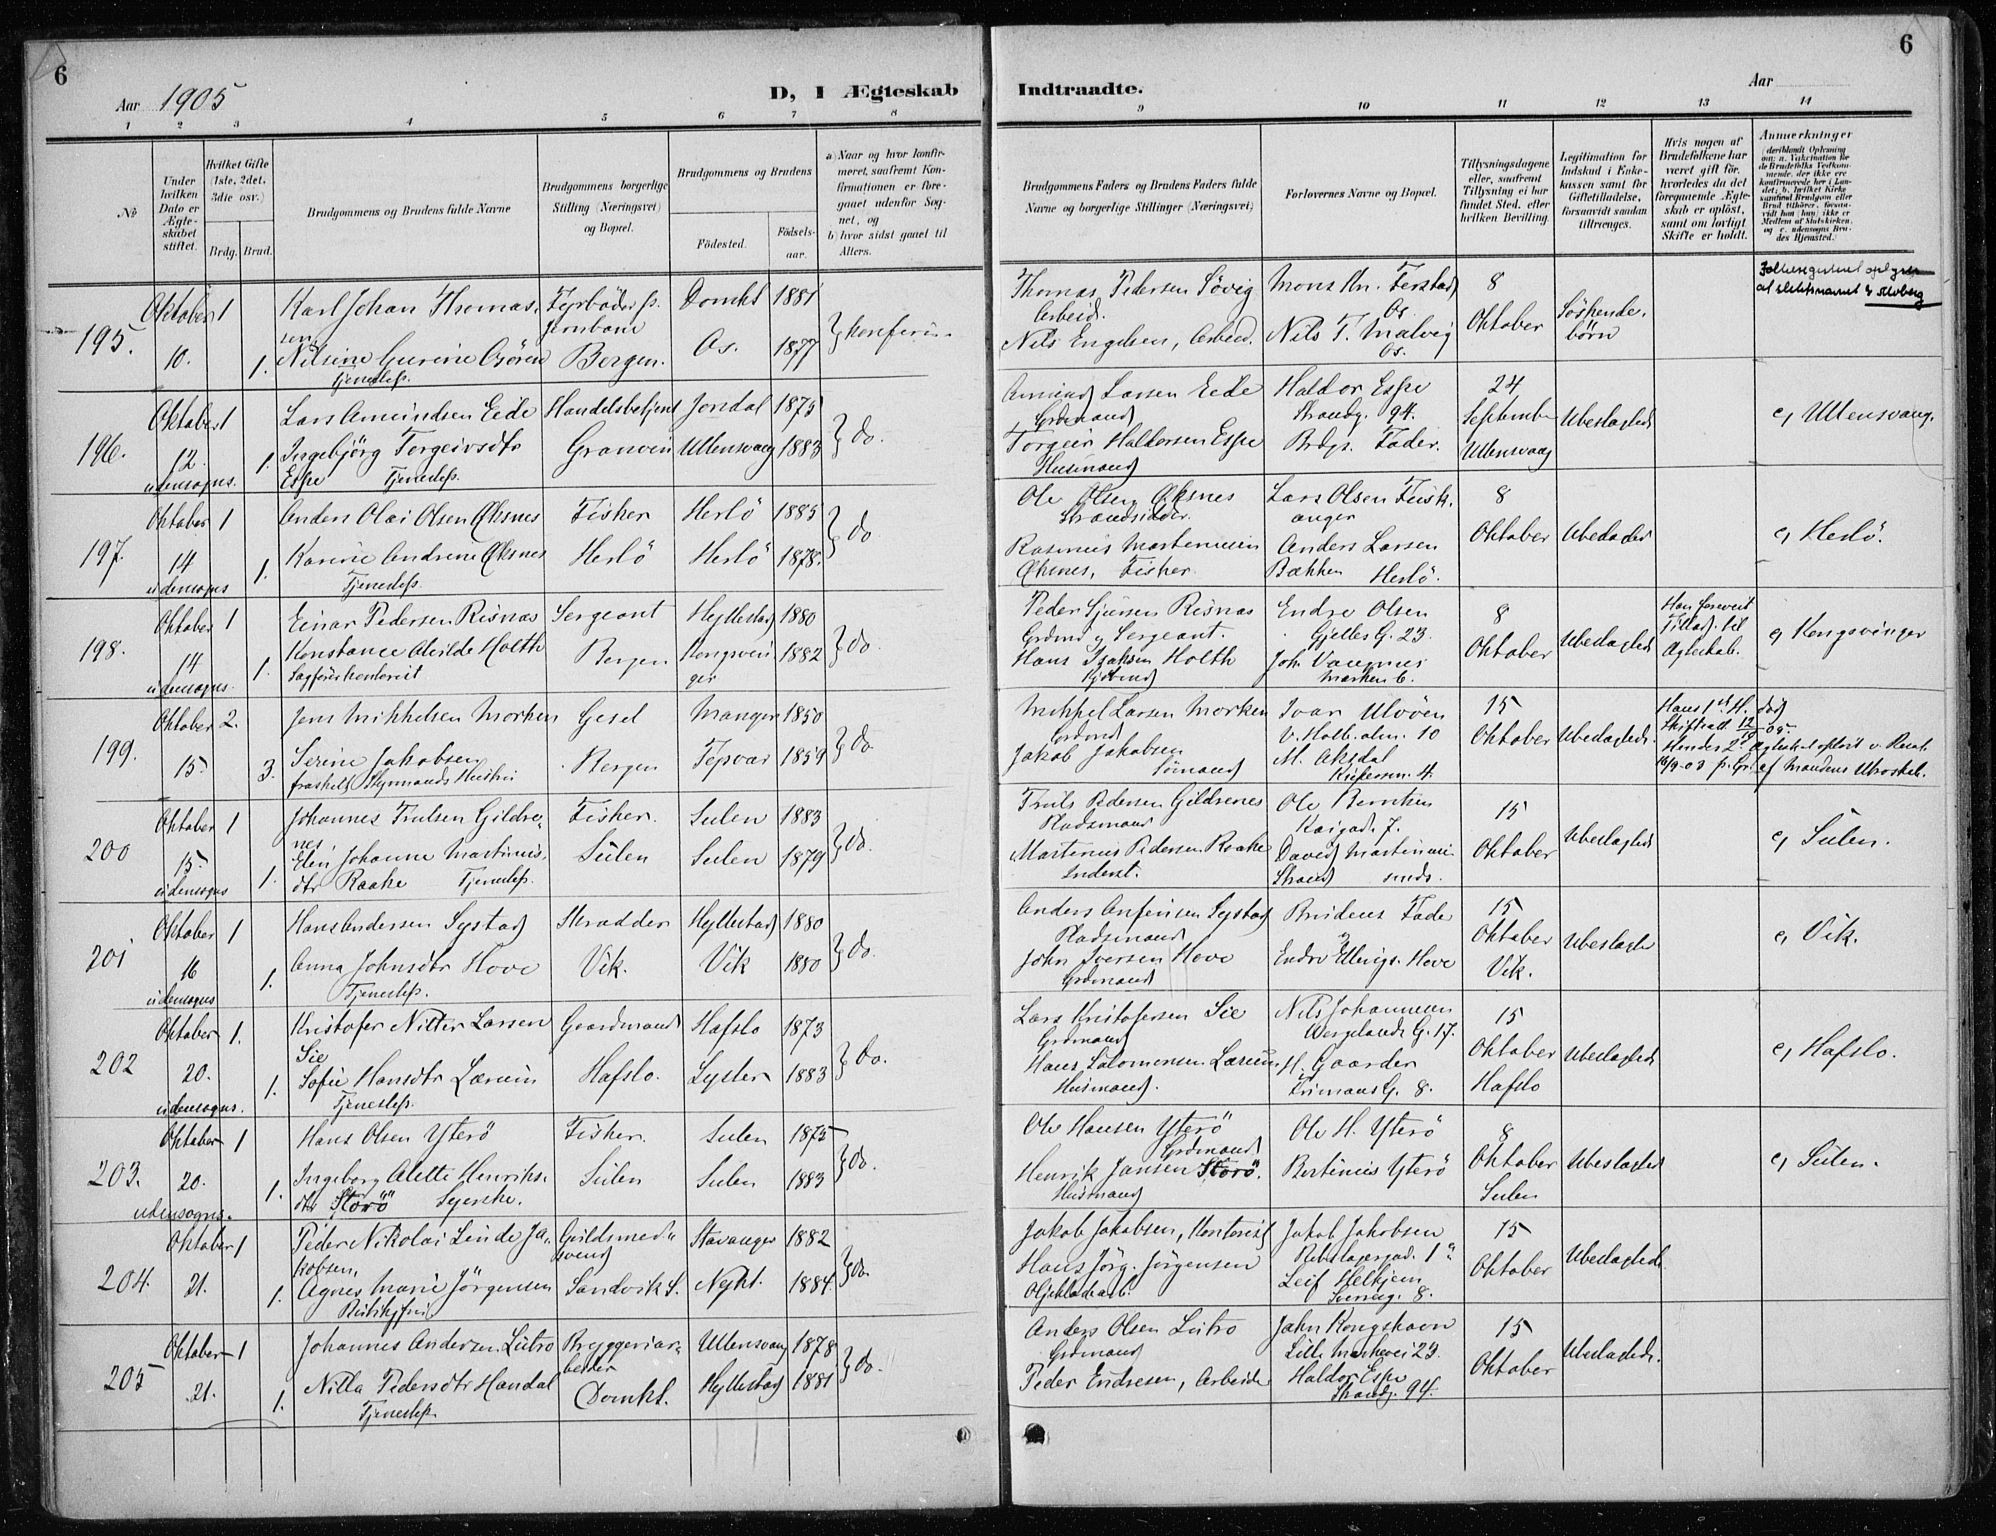 6
Aar 1905
D, I Ægteskab
Indtraadte.
Aar
6
1 2 3 4 5 6 7 8 9 10 11 12 13 14
No
Under hvilken Dato er Ægteskabet stiftet.
Hvilket Gifte (1ste, 2det, 3die osv.)
Brdg. Brud.
Brudgommens og Brudens fulde Navne
Brudgommens borgerlige Stilling (Næringsvei) og Bopæl.
Brudgommens og Brudens
Födested. Födselsaar.
a) Naar og hvor konfirmeret, saafremt Konfirmationen er foregaaet udenfor Sognet, og
b) hvor sidst gaaet til Alters.
Brudgommens Faders og Brudens Faders fulde Navne og borgerlige Stillinger (Næringsvei)
Forlovernes Navne og Bopæl.
Tillysningsdagene eller, saafremt Tillysning ei har fundet Sted, efter hvilken Bevilling.
Legitimation for Indskud i Enkekassen samt for Giftetilladelse, forsaavidt saadan tiltrænges.
Hvis nogen af Brudefolkene har været gift før, hvorledes da det foregaaende Ægteskab er oplöst, samt om lovligt Skifte er holdt.
Anmerkninger
195.
Oktober 1
10. 1.
Karl Johan Thomas.
sen
Nilsine Gurine Osören
Tjenestep.
Fyrböder p.
Jernbane
Bergen.
Domkt 1881
Os. 1877
} konferer
Thomas Pedersen Sövig
Arbeid.
Nils Engelsen, Arbeid.
Mons An. Ferstad
Os.
Nils T. Malvig
Os.
8
Oktober
Söskende.
börn
196.
Oktober 1
12. 1.
udensogns.
Lars Amundsen Eide
Ingebjörg Torgeirsdtr
Espe Tjenestep.
Handelsbetjent
Granvin
Jondal 1875
Ullensvang 1883
} do.
Amund Larsen Eide
Grdmand
Torgeir Haldorsen Espe
Husmand
Haldor Espe
Strandg. 94.
Brdgs. Fader.
24
September
Ullensvang
Ubeslægted
c, Ullensvang.
197.
Oktober 1
14 1.
udensogns
Anders Olai Olsen Öksnes
Karine Andrine Öksnes
Tjenestep.
Fisker
Herlö
Herlö 1885
Herlö 1878.
} do
Ole Olsen Öksnes
Strandsidder.
Rasmus Martinusen
Öksnes, Fisker
Lars Olsen Feisk.
anger
Anders Larsen
Bakken Herlö.
8
Oktober
Ubeslægted
c, Herlö.
198.
Oktober 1
14 1.
udensogns.
Einar Pedersen Risnæs
Konstance Alvilde Holth
Sagförerkontorist
Sergeant
Bergen
Hyllestad 1880
Kongsvin
ger 1882
} do.
Peder Sjursen Risnæs
Grdmd og Sergeant.
Hans Isaksen Holth
Endre Olsen
Gjelles G. 23.
Joh. Vangsnes
Marken 6.
8
Oktober
Ubeslægted
Han forevist
Tillad. til
Ægteskab.
c, Kongsvinger
199.
Oktober 2.
15. 3.
Jens Mikkelsen Morken
Serine Jakobsen
fraskilt Hustru
Gesel
Bergen
Manger 1850
1859
} do.
Mikkel Larsen Morken
Grdmd
Jakob Jakobsen
Sömand
Ivar Ulvöen
V. Holb. alm. 10
M. Aksdal
15
Oktober
Ubeslægtede.
Hans 1ste H. död
Hendes 2det Ægteskab oplöst v. Resol.
16/9-03 p. Gr. af Mandens Utroskab.
200
Oktober 1
15. 1.
udensogns
Johannes Trulsen Gildre,
nes
Elen Johanne Martinus.
dtr Raake Tjenestep.
Fisker.
Sulen
Sulen 1883
Sulen 1879
} do.
Truls Pedersen Gildrenes
Pladsmand
Martinus Pedersen Raake
Inderst.
Ole Berntsen
Kaigad. 7.
David Martinusen
Strand
15
Oktober
Ubeslægted
c, Sulen.
201
Oktober 1
16 1.
udensogns
Hans Andersen Systad
Anna Johnsdtr Hove
Tjenestep.
Skrædder
Vik.
Hyllestad 1880
Vik 1880
} do.
Anders Anfinsen Systad
Pladsmand
John Iversen Hove
Grdmand
Brudens Fader
Endre Ellings. Hove
15
Oktober
Vik.
Ubeslægte
c, Vik.
202
Oktober 1.
20. 1.
udensogns.
Kristofer Nitter Larsen
Sie
Sofie Hansdtr Lærum
Tjenestep.
Gaardmand
Hafslo.
Hafslo 1873
Lyster 1883
} do.
Lars Kristofersen Sie
Grdmand
Hans Salomonsen Lærum
Husmand.
Nils Johannesen
Wergelands G. 17.
H. Gaarder
G. 8.
15
Oktober
Hafslo
Ubeslægted
c, Hafslo.
203.
Oktober 1
20. 1.
udensogns.
Hans Olsen Yterö
Ingeborg Alette Henriks.
dtr Storö Syerske.
Fisker.
Sulen
Sulen 1875
Sulen 1883
} do.
Ole Hansen Yterö
Grdmand
Henrik Jansen Storö.
Husmand
Ole H. Yterö
Bertinius Yterö
8
Oktober
Sulen
Ubeslægted
c, Sulen.
204.
Oktober 1
21. 1.
Peder Nikolai Linde Ja,
kobsen
Agnes Marie Jörgensen
Guldsmed"
svend
Sandvik S.
Stavanger 1882
Nykt. 1884.
} do.
Jakob Jakobsen, Kontorist
Hans Jörg. Jörgensen
Oljeklædearb.
Jakob Jakobsen
Rebslagergad. 1"
Leif Helkjem
15
Oktober
Ubeslægtede.
205
Oktober 1
21. 1.
Johannes Andersen Lutro
Nilla Pedersdtr Handal
Tjenestep.
Bryggeriar-
beider
Domkt.
Ullensvang 1878
Hyllestad 1881
} do.
Anders Olsen Lutro
Grdmand
Peder Endresen, Arbeider
John Kongshavn
Lille Markevei 23.
Haldor Espe
Strandg. 94.
15
Oktober
Ubeslægtede.